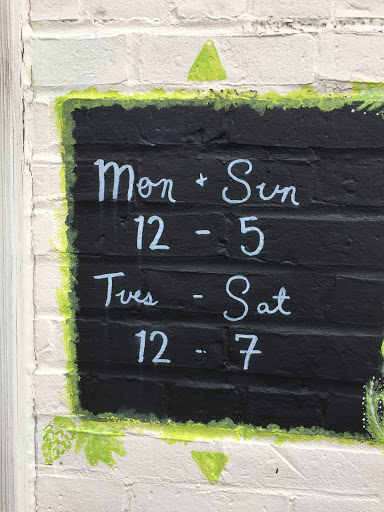 Mon + Sun
12 - 5
Tues - Sat
12 - 7